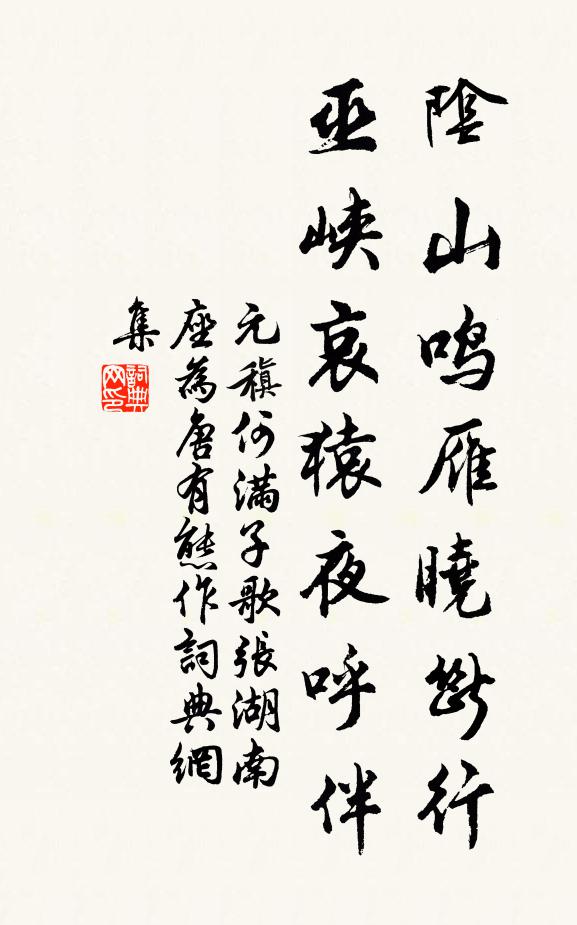 陰山鳴雁曉斷行
巫峽哀猿夜呼伴
元稹何滿子歌張湖南
座為唐有熊作詞典網
集
詞典
网印